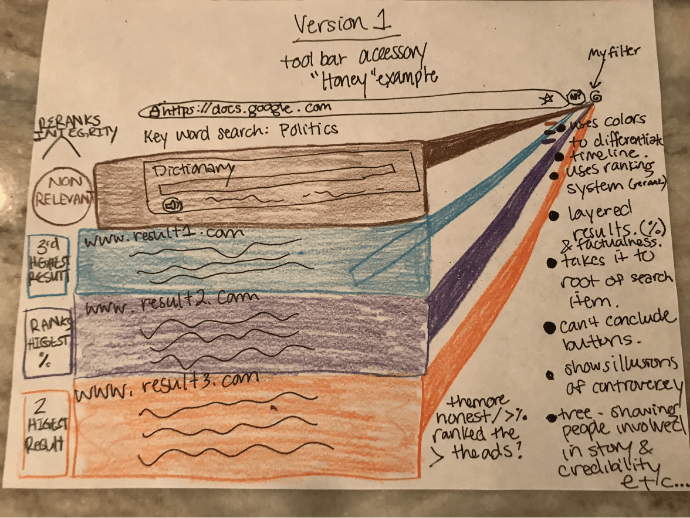 Version 1
tool bar accessory
"Honey" example
My filter
https://docs.google.com
RERANKS
INTEGRITY
Key word search: Politics
Dictionary
NON
RELEVANT
www.result1.com
3rd
HIGHEST
RESULT
www.result2.com
RANKS
HIGEST
%
www.result3.com
2
HIGEST
RESULT
the more
honest / >%
ranked the
> the ads?
uses colors
to differentiate
timeline.
uses ranking
system
layered
results. (%)
& factualness.
takes it to
root of search
item.
can 4 conclude
buttons.
shows illusions
of controvercy
tree - showing
people involved
in story &
credibility
etc...